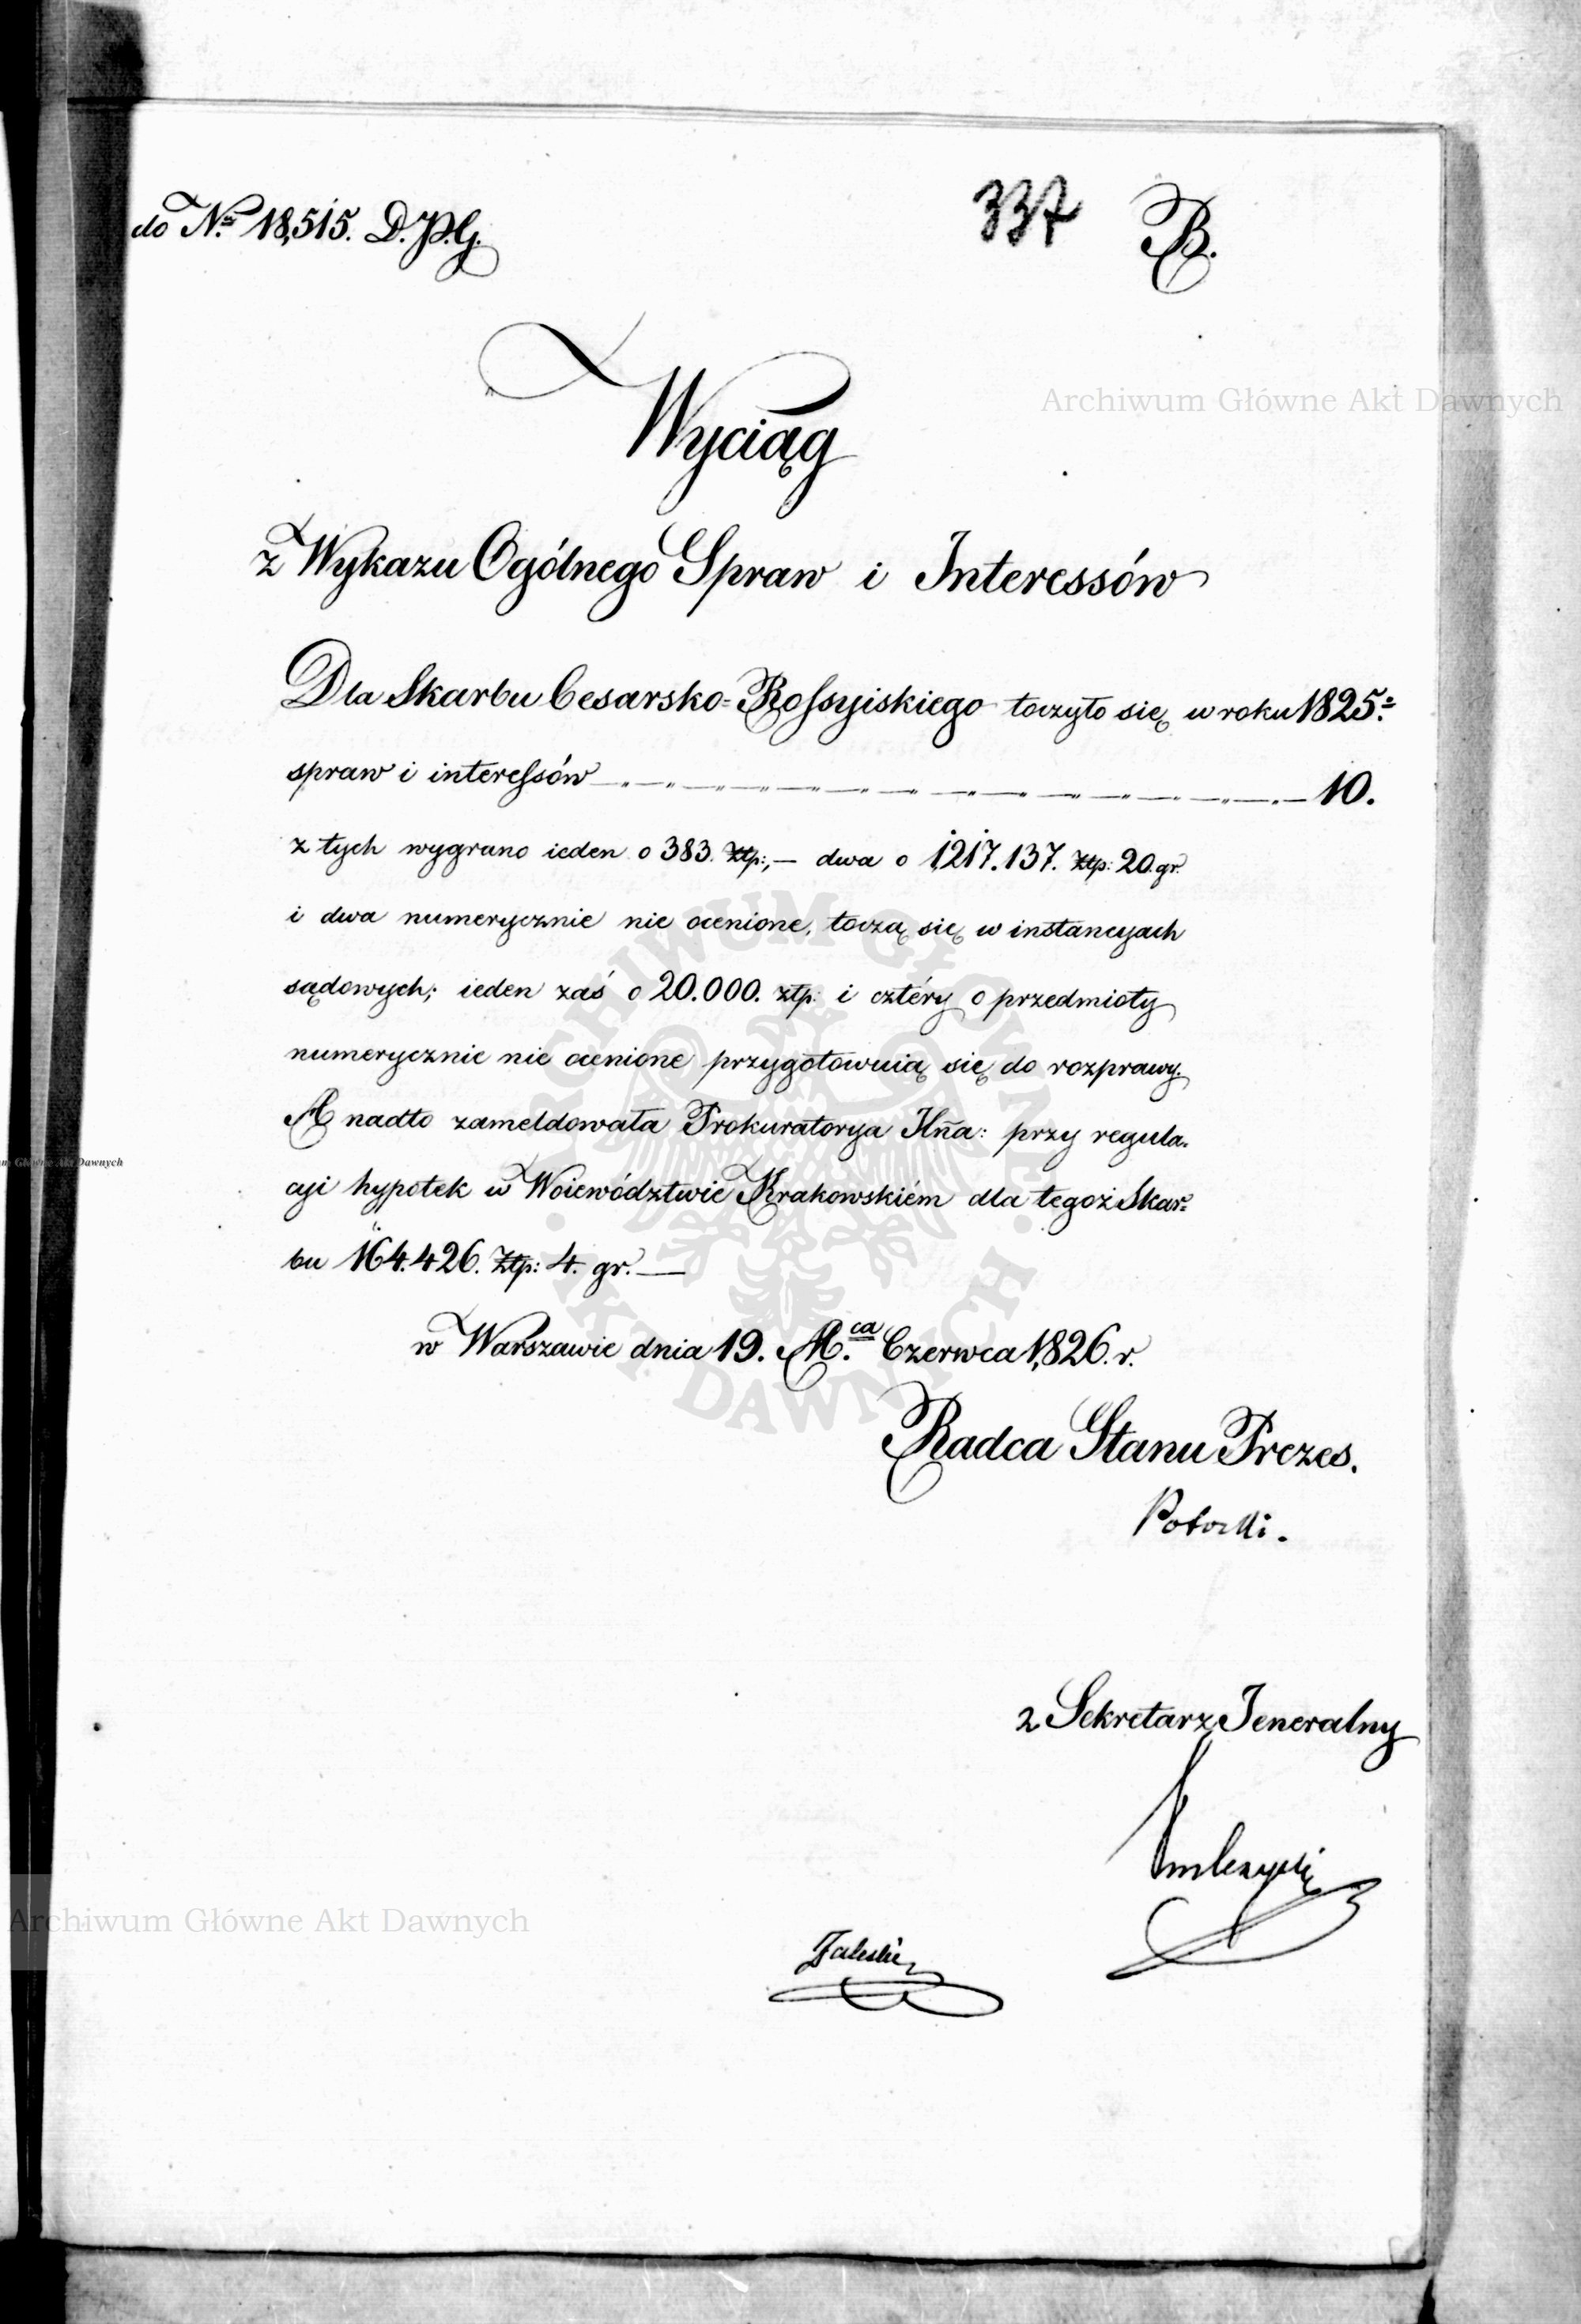 do No 18,515. D.P.G. 337 B.
Archiwum Główne Akt Dawnych
Wyciąg
z Wykazu Ogólnego Spraw i Interessów
Dla Skarbu Cesarsko-Rossyiskiego toczyło się w roku 1825.
spraw i interessów 10.
z tych wygrano ieden o 383. złp:, — dwa o 1,217.137. złp: 20. gr.
i dwa numerycznie nie ocenione, toczą się w instancyach
sądowych; ieden zaś o 20.000. złp: i cztéry o przedmioty
numerycznie nie ocenione przygotowuią się do rozprawy.
A nadto zameldowała Prokuratorya Jłña: przy regula-
cyi hypotek w Woiewództwie Krakowskiém dla tegoż Skar-
bu 164.426. złp: 4. gr. —
w Warszawie dnia 19. M.ca Czerwca 1,826. r.
Radca Stanu Prezes.
Potocki.
z Sekretarz Jeneralny
Zaleski
Archiwum Główne Akt Dawnych
ARCHIWUM GŁÓWNE AKT DAWNYCH